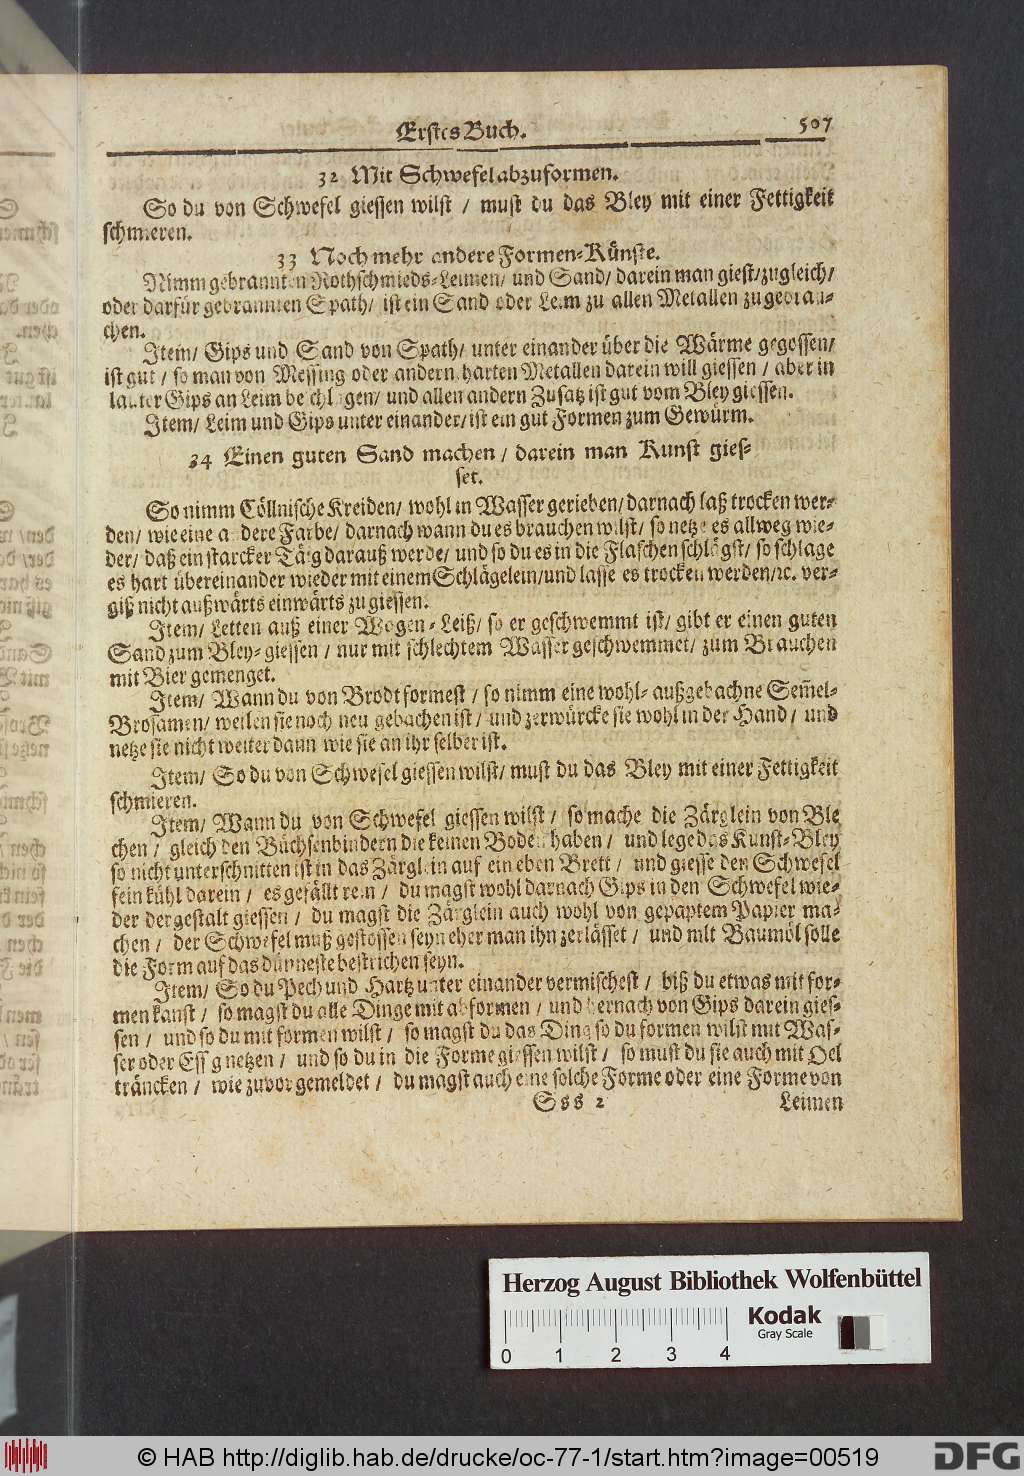 Erstes Buch. 507
32 Mit Schwefel abzuformen.
So du von Schwefel giessen wilst / must du das Bley mit einer Fettigkeit
schmieren.
33 Noch mehr andere Formen-Künste.
Nimm gebrannten Rothschmieds-Leimen/ und Sand/ darein man giest/zugleich/
oder darfür gebrannten Spath/ ist ein Sand oder Leim zu allen Metallen zu gebrau-
chen.
Item/ Gips und Sand von Spath/ unter einander über die Wärme gegossen/
ist gut / so man von Messing oder andern harten Metallen darein will giessen / aber in
lauter Gips an Leim beschlagen/ und allen andern Zusatz ist gut vom Bley giessen.
Item/ Leim und Gips unter einander/ ist ein gut Formen zum Gewürm.
34 Einen guten Sand machen / darein man Kunst gies-
set.
So nimm Cöllnische Kreiden/ wohl in Wasser gerieben/ darnach laß trocken wer-
den/ wie eine andere Farbe/ darnach wann du es brauchen wilst/ so netze es allweg wie-
der/ daß ein starcker Täig darauß werde/ und so du es in die Flaschen schlägst/ so schlage
es hart übereinander wieder mit einem Schlägelein/und lasse es trocken werden/ꝛc. ver-
giß nicht außwärts einwärts zu giessen.
Item/ Letten auß einer Wogen-Leiß/ so er geschwemmt ist/ gibt er einen guten
Sand zum Bley-giessen / nur mit schlechtem Wasser geschwemmet/ zum Brauchen
mit Bier gemenget.
Item/ Wann du von Brodt formest / so nimm eine wohl-außgebachne Sem̃el-
Brosamen/ weilen sie noch neu gebachen ist / und zerwürcke sie wohl in der Hand / und
netze sie nicht weiter dann wie sie an ihr selber ist.
Item/ So du von Schwefel giessen wilst/ must du das Bley mit einer Fettigkeit
schmieren.
Item/ Wann du von Schwefel giessen wilst / so mache die Zärglein von Ble
chen / gleich den Büchsenbindern die keinen Boden haben / und lege das Kunst-Bley
so nicht unterschnitten ist in das Zärglein auf ein eben Brett / und giesse den Schwefel
fein kühl darein / es gefällt rein / du magst wohl darnach Gips in den Schwefel wie-
der dergestalt giessen / du magst die Zärglein auch wohl von gepaptem Papier ma-
chen / der Schwefel muß gestossen seyn eher man ihn zerlässet / und mit Baumöl solle
die Form auf das dünneste bestrichen seyn.
Item/ So du Pech und Hartz unter einander vermischest / biß du etwas mit for-
men kanst / so magst du alle Dinge mit abformen / und hernach von Gips darein gies-
sen / und so du mit formen wilst / so magst du das Ding so du formen wilst mit Was-
ser oder Essig netzen / und so du in die Forme giessen wilst / so must du sie auch mit Oel
träncken / wie zuvor gemeldet / du magst auch eine solche Forme oder eine Forme von
Sss 2 Leimen
Herzog August Bibliothek Wolfenbüttel
Kodak
Gray Scale
0 1 2 3 4
© HAB http://diglib.hab.de/drucke/oc-77-1/start.htm?image=00519
DFG